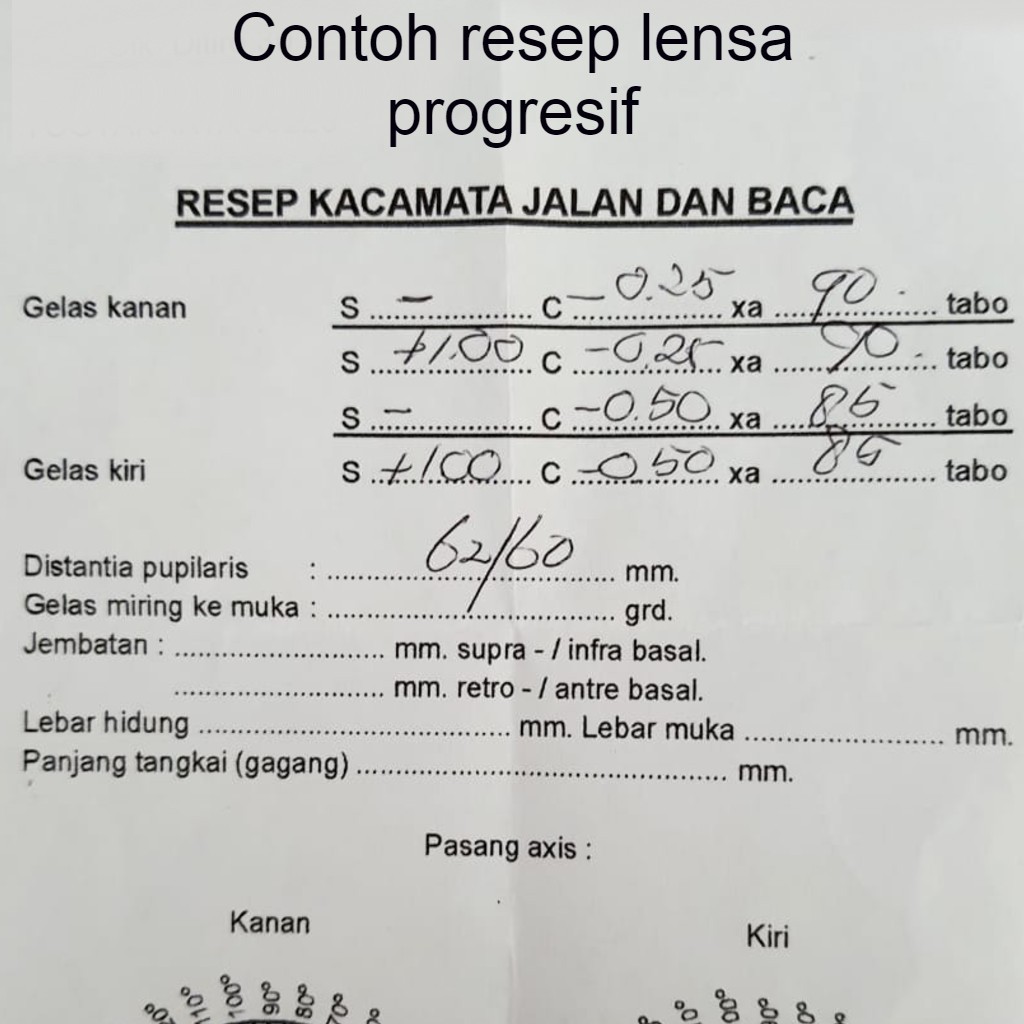 Contoh resep lensa
progresif
RESEP KACAMATA JALAN DAN BACA
Gelas kanan S – C –0.25 xa 90 tabo
S +1.00 C –0,25 xa 90 tabo
S – C –0.50 xa 85 tabo
Gelas kiri S +1.00 C –0.50 xa 85 tabo
Distantia pupilaris : 62/60 mm.
Gelas miring ke muka : ........ grd.
Jembatan : ........ mm. supra - / infra basal.
........ mm. retro - / antre basal.
Lebar hidung ........ mm. Lebar muka ........ mm.
Panjang tangkai (gagang) ........ mm.
Pasang axis :
Kanan
Kiri
110° 100° 90° 80°